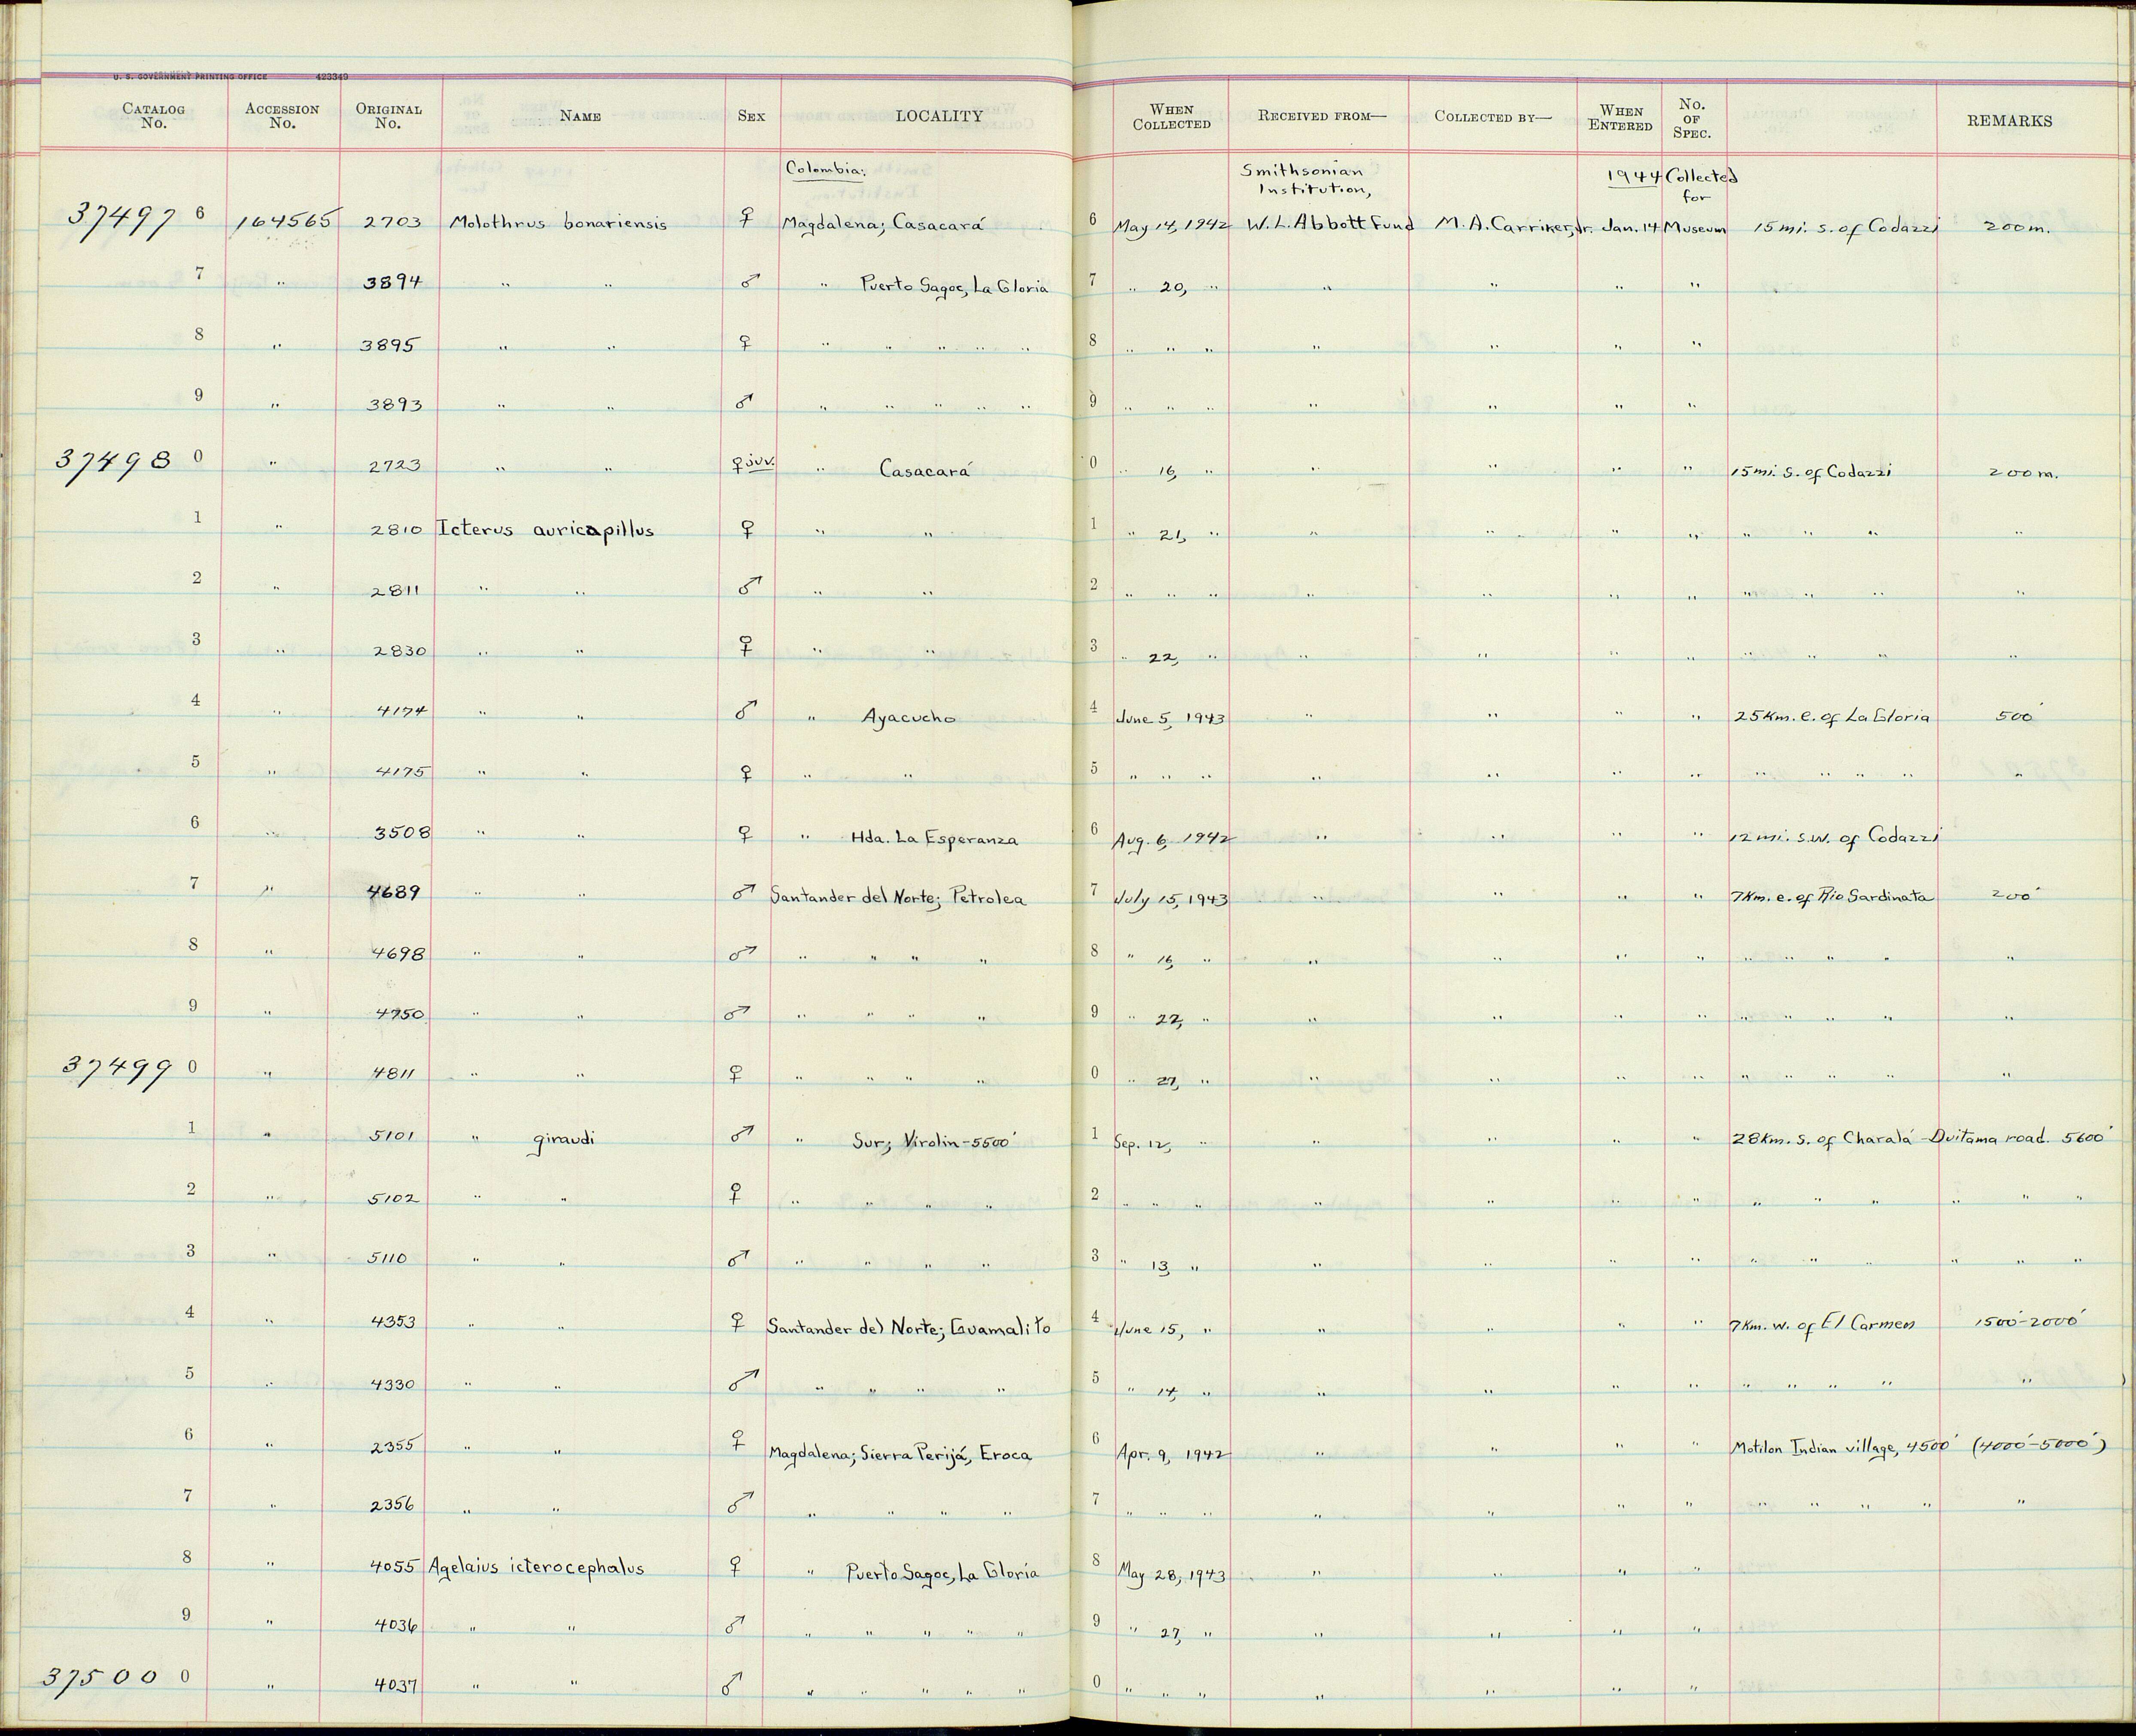 U. S. GOVERNMENT PRINTING OFFICE 423349
CATALOG No. ACCESSION No. ORIGINAL No. NAME SEX LOCALITY WHEN COLLECTED RECEIVED FROM— COLLECTED BY— WHEN ENTERED No. OF SPEC. REMARKS
Colombia: Smithsonian Institution, 1944 Collected for
37497 6 164565 2703 Molothrus bonariensis ♀ Magdalena; Casacará 6 May 14, 1942 W. L. Abbott Fund M. A. Carriker, Jr. Jan. 14 Museum 15 mi. s. of Codazzi 200 m.
7 " 3894 " " ♂ " Puerto Sagoc, La Gloria 7 " 20, " " " " "
8 " 3895 " " ♀ " " " " " 8 " " " " " " "
9 " 3893 " " ♂ " " " " " 9 " " " " " " "
37498 0 " 2723 " " ♀ juv. " Casacará 0 " 16, " " " " " 15 mi. s. of Codazzi 200 m.
1 " 2810 Icterus auricapillus ♀ " " 1 " 21, " " " " " " " " "
2 " 2811 " " ♂ " " 2 " " " " " " " " " " "
3 " 2830 " " ♀ " " 3 " 22, " " " " " " " " "
4 " 4174 " " ♂ " Ayacucho 4 June 5, 1943 " " " " 25 Km. e. of La Gloria 500'
5 " 4175 " " ♀ " " 5 " " " " " " " " " " " "
6 " 3508 " " ♀ " Hda. La Esperanza 6 Aug. 6, 1942 " " " " 12 mi. s.w. of Codazzi
7 " 4689 " " ♂ Santander del Norte; Petrolea 7 July 15, 1943 " " " " 7 Km. e. of Rio Sardinata 200'
8 " 4698 " " ♂ " " " " 8 " 16, " " " " " " " " " "
9 " 4750 " " ♂ " " " " 9 " 22, " " " " " " " " " "
37499 0 " 4811 " " ♀ " " " " 0 " 27, " " " " " " " " " "
1 " 5101 " giraudi ♂ " Sur; Virolin-5500' 1 Sep. 12, " " " " " 28 Km. s. of Charalá-Duitama road. 5600'
2 " 5102 " " ♀ " " " " 2 " " " " " " " " " " " " "
3 " 5110 " " ♂ " " " " 3 " 13, " " " " " " " " " " "
4 " 4353 " " ♀ Santander del Norte; Guamalito 4 June 15, " " " " " 7 Km. w. of El Carmen 1500'-2000'
5 " 4330 " " ♂ " " " " 5 " 14, " " " " " " " " " "
6 " 2355 " " ♀ Magdalena; Sierra Perijá, Eroca 6 Apr. 9, 1942 " " " " Motilon Indian village, 4500' (4000'-5000')
7 " 2356 " " ♂ " " " " 7 " " " " " " " " " " " "
8 " 4055 Agelaius icterocephalus ♀ " Puerto Sagoc, La Gloria 8 May 28, 1943 " " " "
9 " 4036 " " ♂ " " " " " 9 " 27, " " " " "
37500 0 " 4037 " " ♂ " " " " " 0 " " " " " " "